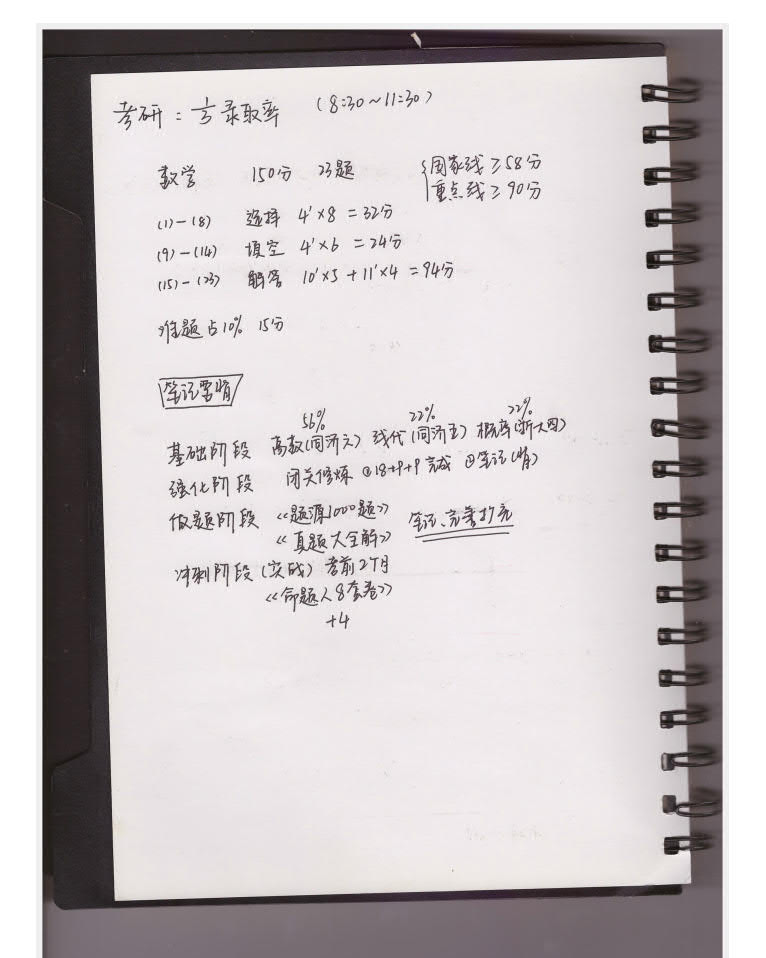 考研：1/3 录取率 （8:30～11:30）
数学 150分 23题 {国家线≥58分
重点线≥90分
(1)-(8) 选择 4'×8=32分
(9)-(14) 填空 4'×6=24分
(15)-(23) 解答 10'×5+11'×4=94分
难题占10% 15分
笔记要背
56% 22% 22%
基础阶段 高数(同济六) 线代(同济五) 概率(浙大四)
强化阶段 闭关修炼 ①18+9+9完成 ②笔记(背)
做题阶段 《题源1000题》 笔记
《真题大全解》
冲刺阶段(实战) 考前2个月
《命题人8套卷》
+4